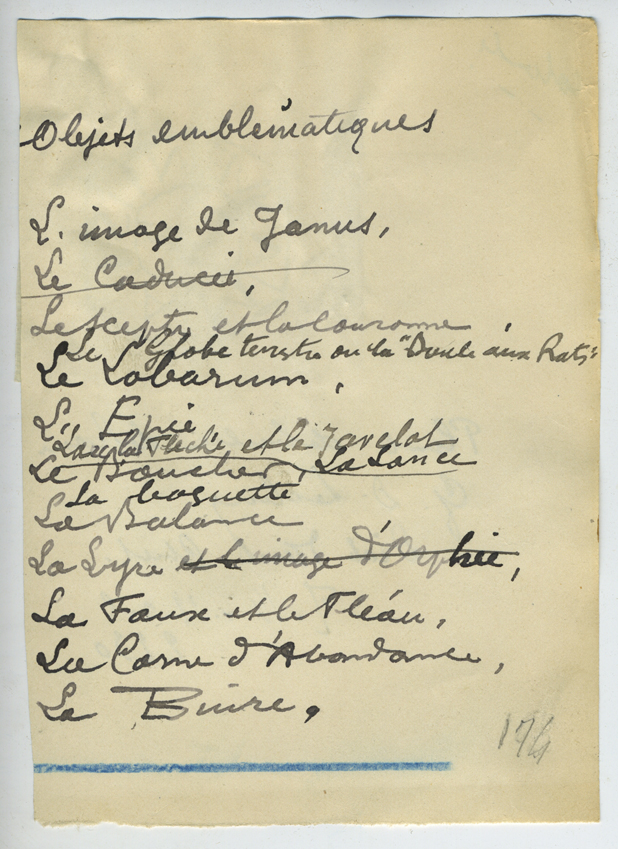 Objets emblématiques
L'image de Janus,
Le Caducée,
Le sceptre et la couronne,
Le Globe terrestre ou la "Boule aux Rats"
Le Labarum,
L'Epée
L'arc la Flèche et le Javelot
Le Bouclier, La Lance
La baguette
La Balance
La Lyre et l'image d'Orphée,
La Faux et le Fléau,
La Corne d'Abondance,
La Buire.
174